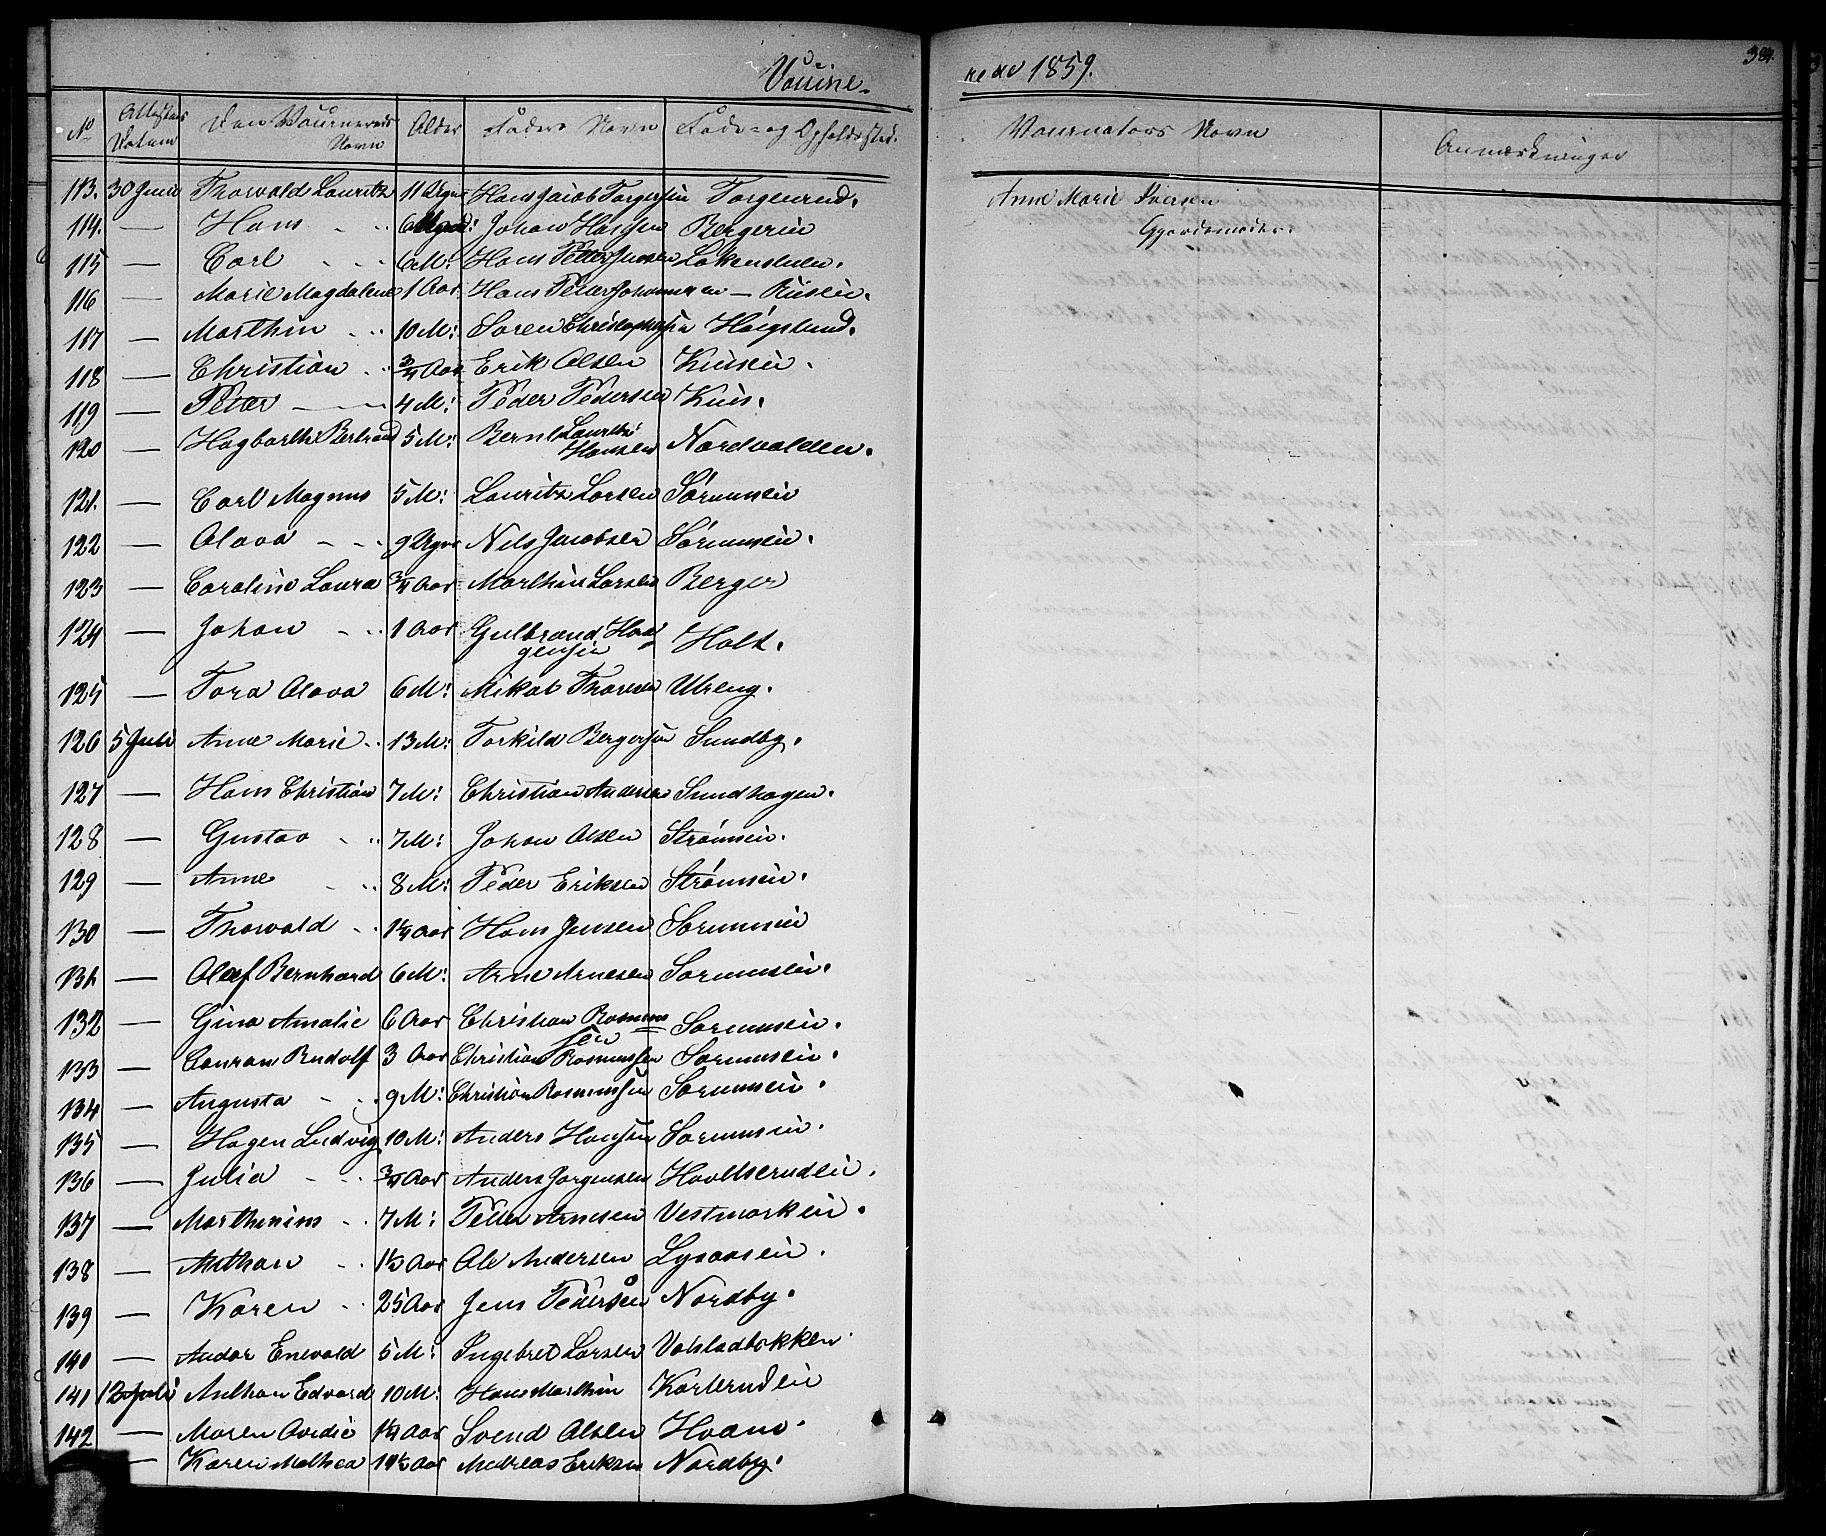 Vaccine-
rede 1859.
384.
No Attestens Datum Den Vaccineredes Navn Alder Faders Navn Føde- og Opholdssted.
Vaccinators Navn Anmærkninger
113. 30 Juni Thorvald Lauritz 11 Uger Hans Jacob Torgersen Torgenrud.
Anne Marie Iversen
Gjordemoder.
114. — Hans 6 Johan Hansen Bergerie
115 — Carl 6 M: Hans Petter Jensen Løkenslulen.
116 — Marie Magdalene 1 Aar Hans Peter Johannesen — Riisein.
117 — Marthin 10 M: Søren Christophersen Høigslund.
118 — Christian 3/4 Aar Erik Olsen Kuisein.
119 — Peter 4 M: Peder Pedersen Kuis.
120 — Hagbarth Bertrand 5 M: Bernt Lauritz Hansen Nordvolden.
121. — Carl Magnus 5 M: Lauritz Larsen Sørumsein
122 — Olava 9 Uger Nils Jacobsen Sørumsein.
123 — Caroline Laura 3/4 Aar Marthin Larsen Berger
124 — Johan 1 Aar Gulbrand Haagensen Holt.
125 — Tora Olava 6 M: Mikal Thoresen Ulreng.
126 5 Juli Anne Marie 13 M: Torkild Bergersen Sundby.
127 — Hans Christian 7 M: Christian Andersen Sundhagen.
128 — Gustav 7 M: Johan Olsen Strømsein.
129 — Anne 8 M: Peder Eriksen Strømsein.
130 — Thorvald 1 1/4 Aar Hans Jensen Sørumsein
131 — Oluf Bernhard 6 M: Arne Arnesen Sørumsein.
132 — Gina Amalie 6 Aar Christian Rasmussen Sørumsein.
133 — Conram Rudolf 3 Aar Christian Rasmussen Sørumsein.
134 — Augusta 9 M: Christian Rasmussen Sørumsein.
135 — Hagen Ludvig 10 M: Anders Hansen Sørumsein.
136 — Julia 3/4 Aar Anders Jørgensen Hovelserudein.
137 — Marthinius 7 M: Petter Arnesen Vestmarkein.
138 — Anthon 1 1/2 Aar Ole Andersen Lysaasein.
139 — Karen 25 Aar Jens Pedersen Nordby.
140 — Andor Enevald 5 M: Ingebret Larsen Valstadbakken
141 12 Juli Anthon Edvard 10 M: Hans Marthin Karterudein
142 — Maren Ovedie 1 1/4 Aar Svend Olsen Hvam.
— Karen Mathea 1 1/2 Aar Andreas Eriksen Nordby.